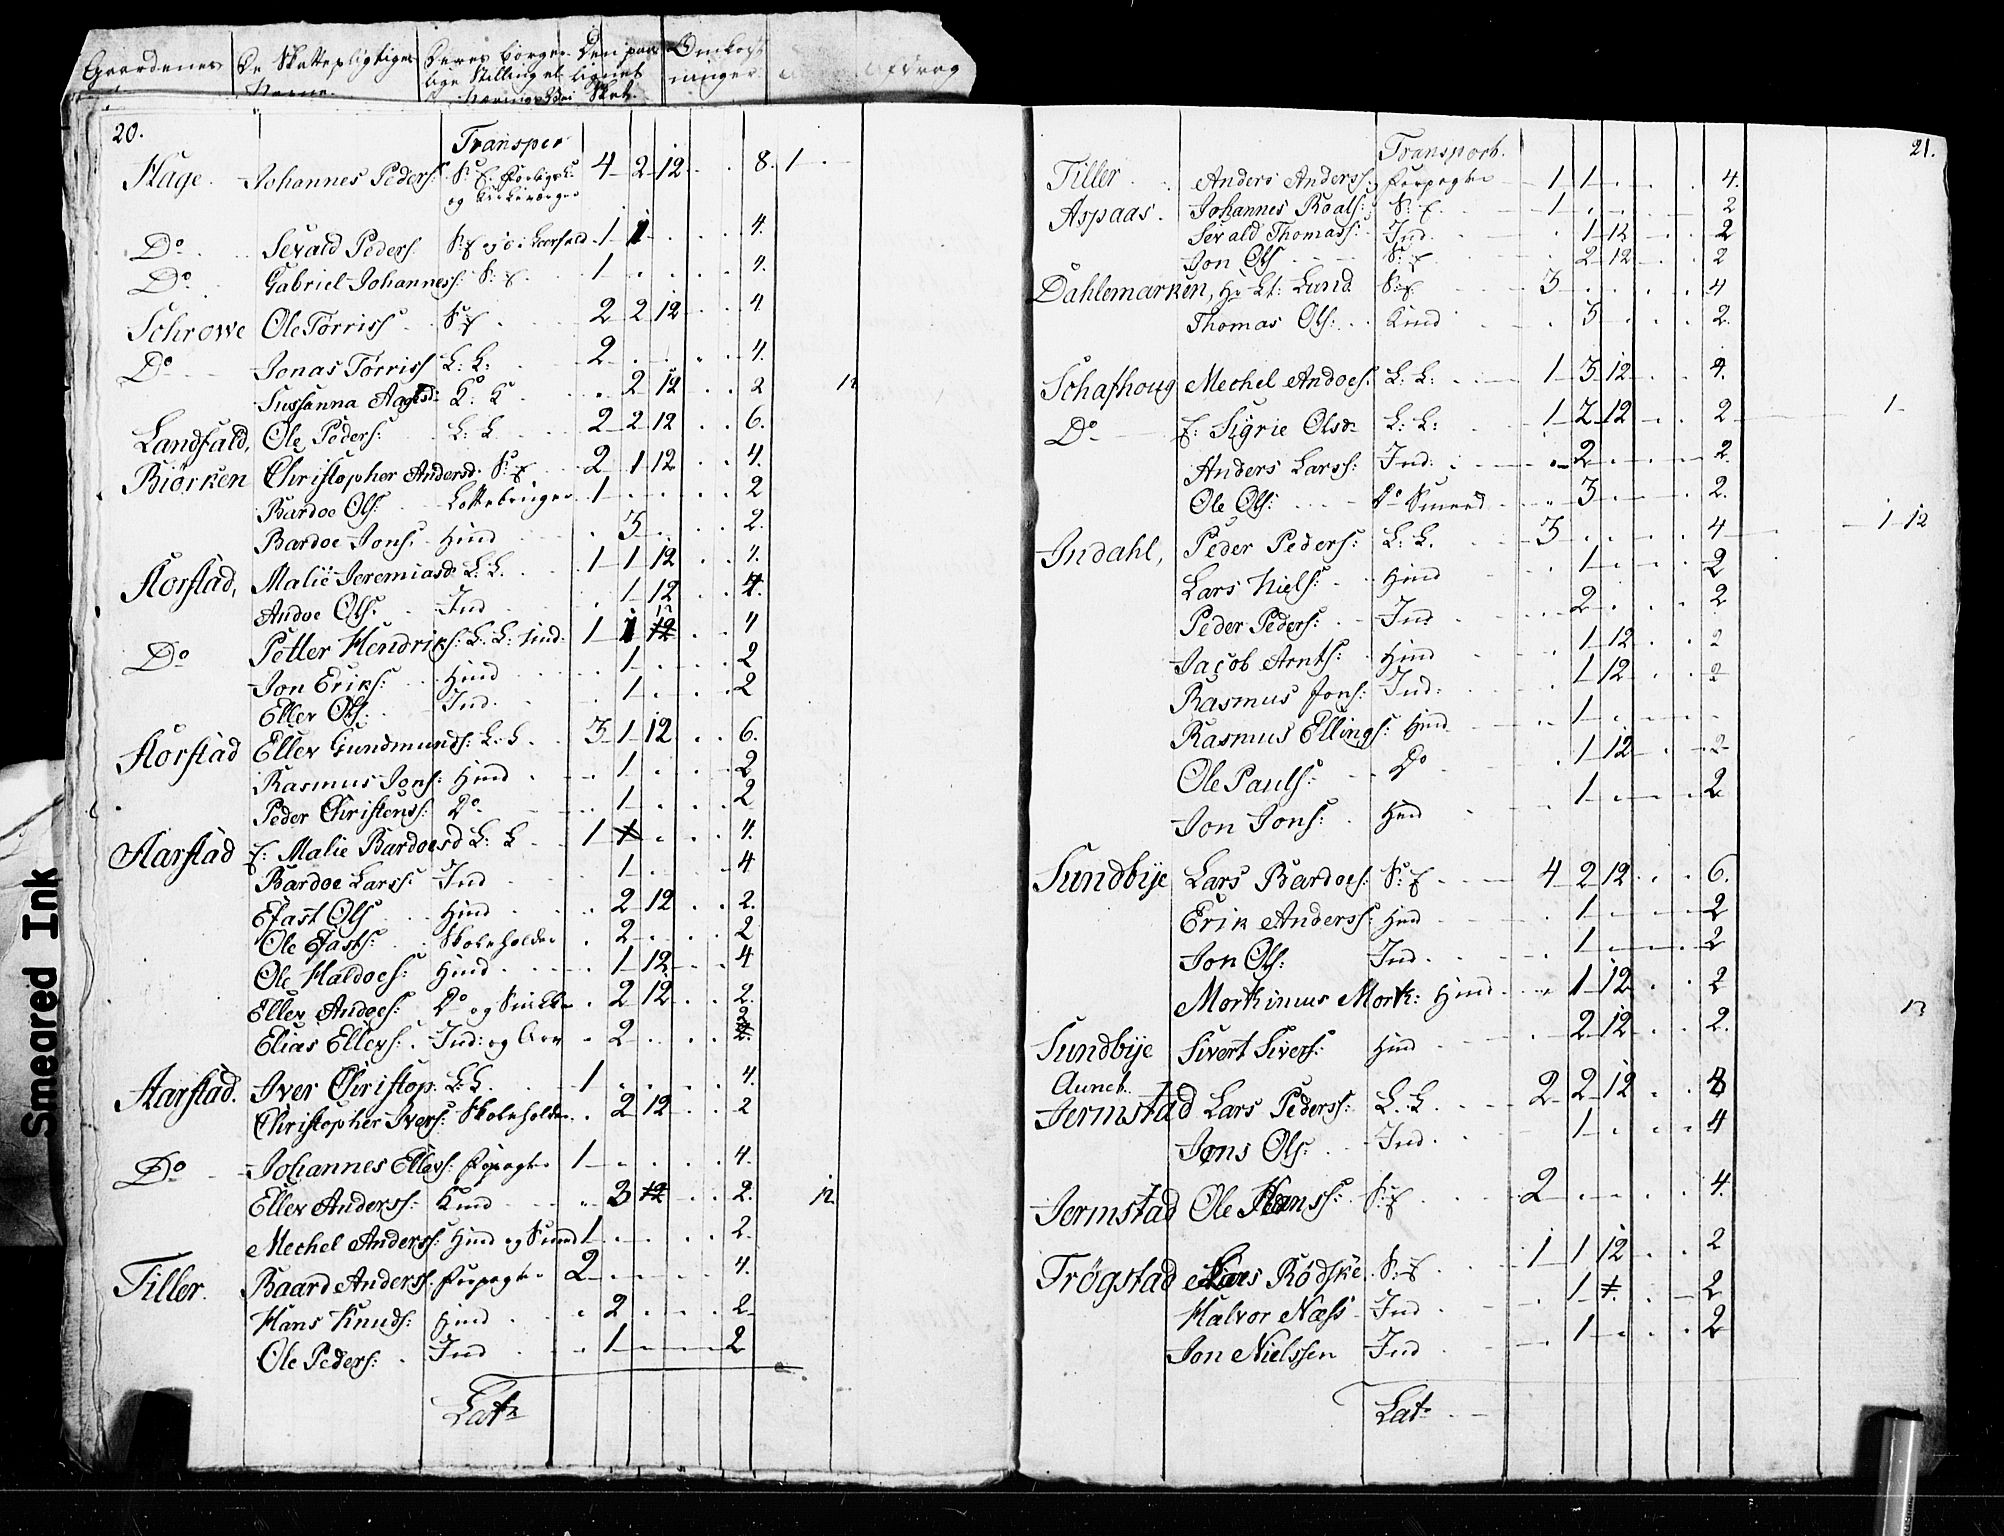 Gaardenes De Skattepligtiges Deres borger- Den paa- Omkost-
Navne lige Stilling el. lignet ninger Afdrag
Nærings Vei Skat
20.
Transport
Hage. Johannes Peders: S: E. Forligsk: 4 2 12 . . 8. 1 . -
og Kirkeværger
Do Sevald Peders. S: E 1 1 . . . 4.
Do Gabriel Johanness: S: E. 1 . . . . 4.
Schrowe Ole Torriss S: E 2 2 12 . . 4
Do Jonas Torriss L: L: 2 . . . . 4.
Sussanna Aagesd: K: K . 2 12 . . 2 12
Landfald, Ole Peders: L: L 2 2 12 . . 6.
Biörken Christopher Andersd. S: E 2 1 12 . . 4.
Bardoe Ols: Lottebruger 1 . . . . 2
Bardoe Jons. Huusd . 3 . . . 2.
Horstad, Malie Jeremiasd: L: L. 1 1 12 . . 4.
Andoe Ols. Ind . 1 12 . . 4.
Do Petter Hendriks: L: L: 1 1 12 . . 4
Jon Eriks: Huusd . 1 . . . 2
Eller Ols: Ind. . 1 . . . 2
Horstad Eller Gundmunds: L: L 3 1 12 . . 6.
Rasmus Jons: Huusd . 1 . . . 2
Peder Christens: Do . 1 . . . 2
Harstad E: Malie Bardoesd L: L 1 . . . . 4.
Bardoe Larss: Ind . 1 . . . 4
Efast Ols Huusd . 2 12 . . 2.
Ole Efasts: Skoleholder . 2 . . . 2
Ole Haldoes: Huusd . 1 12 . . 4
Eller Andoes: Do og Snikker . 2 12 . . 2.
Elias Ellers: Ind: og . 2 . . . 2
Aarstad. Iver Christop: L: L. 1 . . . . 4.
Christopher Ivers: Skoleholder . 2 12 . . 2
Do Johannes Ellers: Forpagter 1 . . . . 4.
Eller Anderss: . 3 12 . . 2. 12
Mechel Anderss: Huusd og Smed 1 . . . . 2.
Tiller. Baard Anderss: Forpagter 2 . . . . 4.
Hans Knuds: Huusd . 2 . . . 2
Ole Peders: Ind . 1 . . . 2
Lats
21.
Transport.
Tiller Anders Anderss: Forpagter 1 1 . . . 4.
Aspaas. Johannes Roals: S: E 1 . . . . 2
Sevald Thomass: Ind. . 1 12 . . 2
Jon Ols S: E . 2 12 . . 2
Dahlemarken, Hr Lt: Lund S: E 3 . . . . 4
Thomas Ols: . 3 . . . 2.
Schafhoug Mechel Andoes: L: L: 1 3 12 . . 4.
Do E: Sigrie Olsd: L: L: 1 2 12 . . 2 1
Anders Larss: Ind: . 2 . . . 2.
Ole Ols: Do Smeed . 3 . . . 2.
Indahl, Peder Peders: L: L. 3 . . . . 4 1 12
Lars Niels: Huusd . 1 . . . 2
Peder Peders: Ind . 2 . . . 2
Jacob Arnts: Huusd . 1 12 . . 2
Rasmus Jons: Ind: . 1 12 . . 2
Rasmus Ellings: Huusd . 1 . . . .
Ole Pauls: Do . 1 12 . . 2
Jon Jons: Huusd . 1 . . . 2
Sundbye Lars Bardoes: S: E 4 2 12 . . 6.
Erik Anderss: Huusd . 1 . . . 2
Jon Ols: Ind . 1 . . . 2
Morthinus Mort: Huusd . 1 12 . . 2
13
Sundbye Sivert Sivers: Huusd . 2 12 . . 2.
Auneb.
Jermstad Lars Pederss: L: L 2 2 12 . . 8
Jons Ols: Ind. . 1 . . . 4
Jermstad Ole Hanss: S: E 2 . . . . 4.
Trøgstad Lars Rödske S: E 1 1 12 . . 2
Halvor Næss Ind . 1 . . . 2
Jon Nielssen Ind . 1 . . . 2
Lats
Smeared Ink